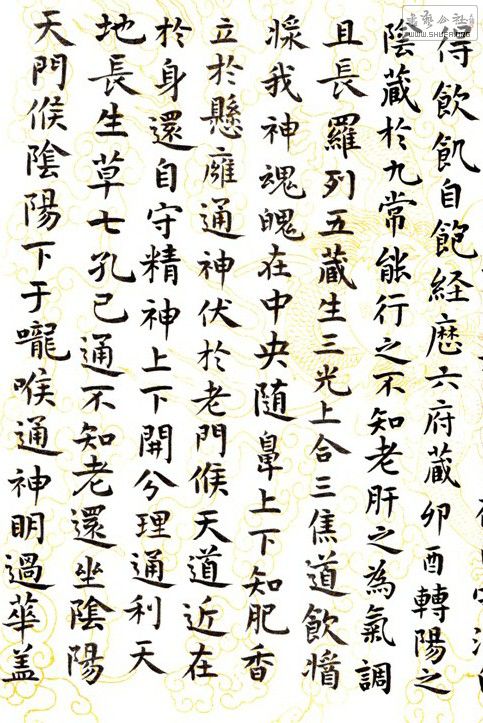 得飲飢自飽経歴六府藏卯酉轉陽之
陰藏於九常能行之不知老肝之為氣調
且長羅列五藏生三光上合三焦道飲醬
漿我神魂魄在中央随鼻上下知肥香
立於懸癕通神伏於老門候天道近在
於身還自守精神上下開分理通利天
地長生草七孔已通不知老還坐陰陽
天門候陰陽下于嚨喉通神明過華盖